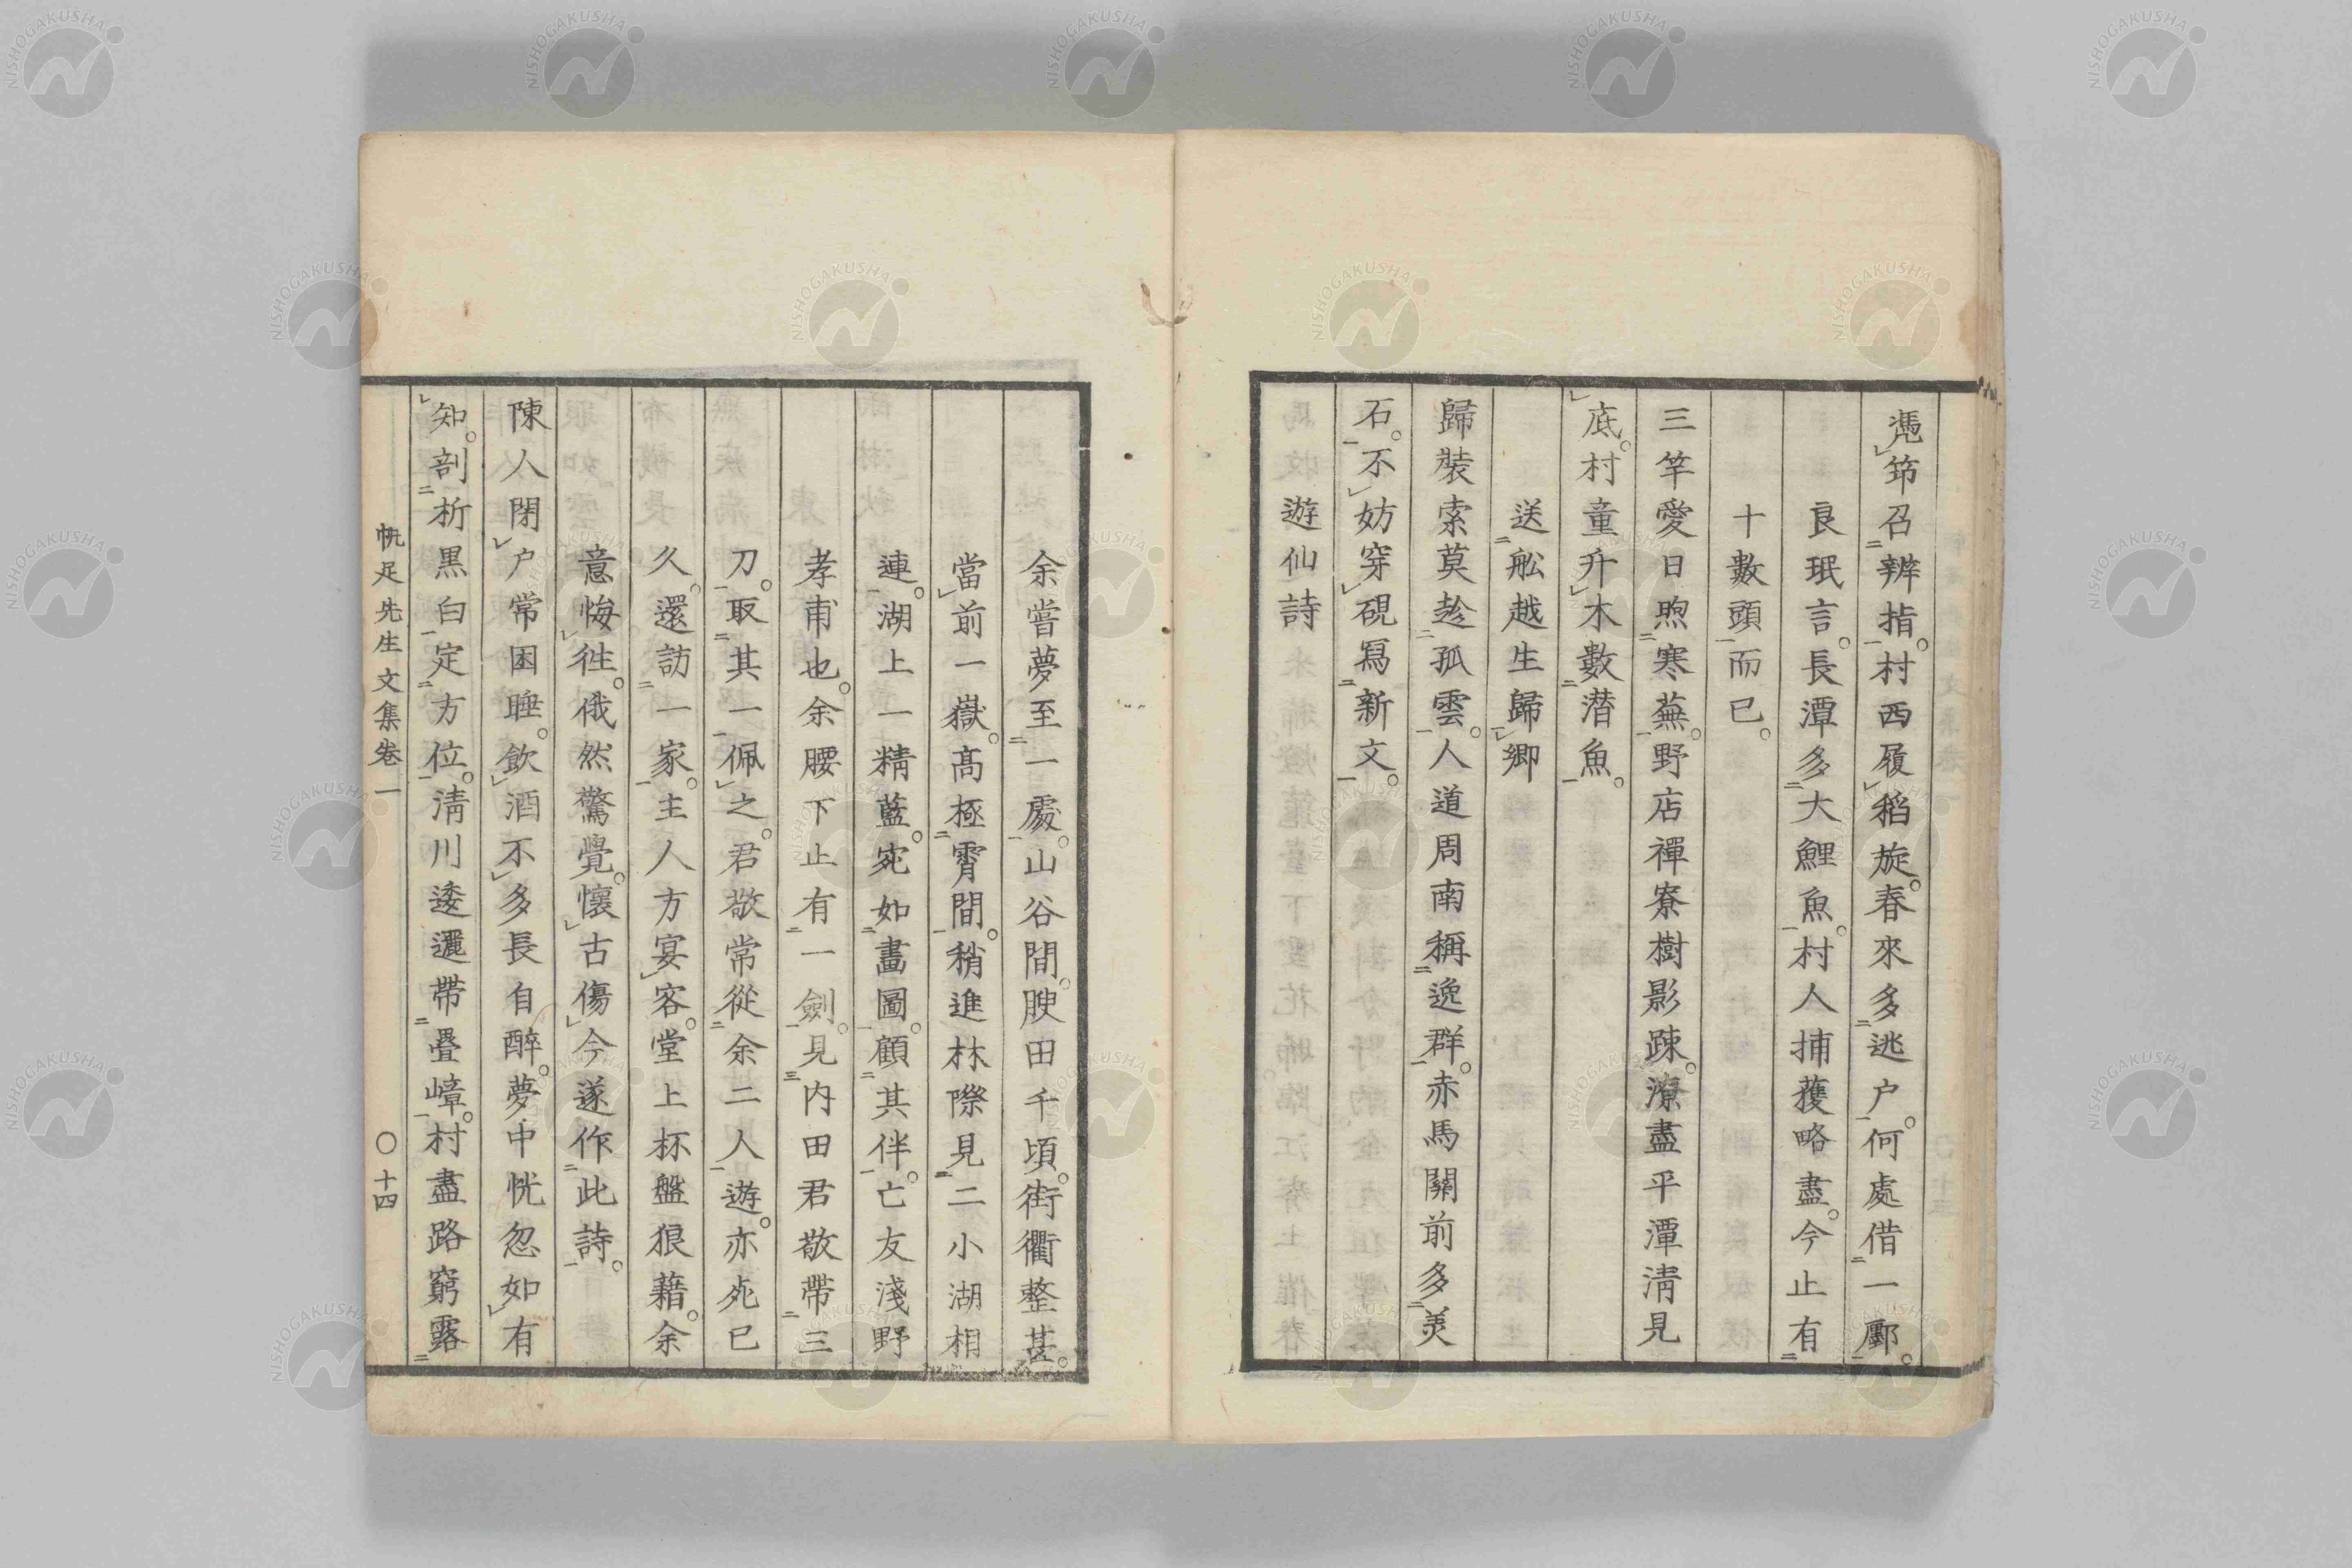 憑筇召辨指。村西履稻旋。春來多逃户。何處借一鄽。
良珉言。長潭多大鯉魚。村人捕蔑略盡。今止有
十數頭而已。
三竿愛日煦寒蕪。野店禪寮樹影疎。潦盡平潭淸見
底。村童升木數潜魚。
送舩越生歸鄉
歸裝索莫趁孤雲。人道周南稱逸群。赤馬關前多羙
石。不妨穿硯寫新文。
遊仙詩
余嘗夢至一處。山谷間。腴田千頃。街衢整甚。
當前一嶽。髙極霄間。稍進林際見二小湖相
連。湖上一精藍。宛如畵圖。顧其伴。亡友淺野
孝甫也。余腰下止有一劍。見内田君敬帶三
刀。取其一佩之。君敬常從余二人遊。亦死已
久。還訪一家。主人方宴客。堂上杯盤狼藉。余
意悔徃。俄然驚覺。懷古傷今遂作此詩。
陳人閉户常困睡。飲酒不多長自醉。夢中恍忽如有
知。剖析黒白定方位。淸川逶邐帶疊嶂。村盡路窮露
帆足先生文集卷一 〇十四
NISHOGAKUSHA